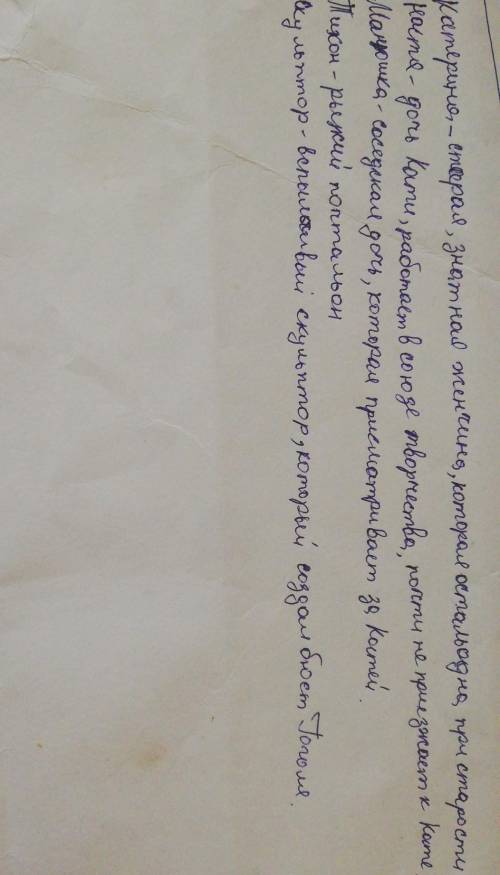 Катерина, - старая, знатная женщина, которая осталась одна, при старости
Настя - дочь Кати, работает в союзе творчества, почти не приезжает к Кате
Манюшка - соседская дочь, которая присматривает за Катей.
Тихон - рыжий почтальон
Скульптор - вспыльчивый скульптор, который создал бюст Гоголя.